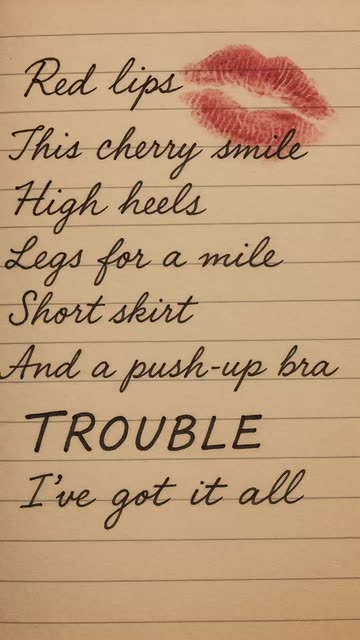 Red lips
This cherry smile
High heels
Legs for a mile
Short skirt
And a push-up bra
TROUBLE
I've got it all